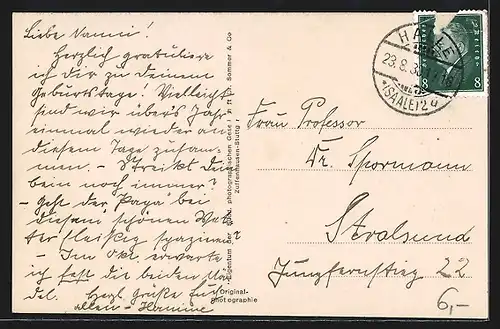 Liebe Nanni!
Herzlich gratuliere
ich dir zu deinem
Geburtstage! Vielleicht
sind wir über's Jahr
einmal wieder an
diesem Tage zusam-
men. – Streikt Dein
bein noch immer?
– geht der Papa bei
diesem schönen Wet-
ter fleißig spazieren?
– Im Okt. erwarte
ich fest die beiden Mä-
del. Herzl. Grüße Euch
allen – Hermine
Eigentum der photographischen Gesellschaft Sommer & Co
Zuffenhausen-Stuttg
Original-
Photographie
HALLE
23.8.30
*(SAALE)2 q
8 8
Frau Professor
Dr. Spormann
Stralsund
Jungfernstieg 22
6,-